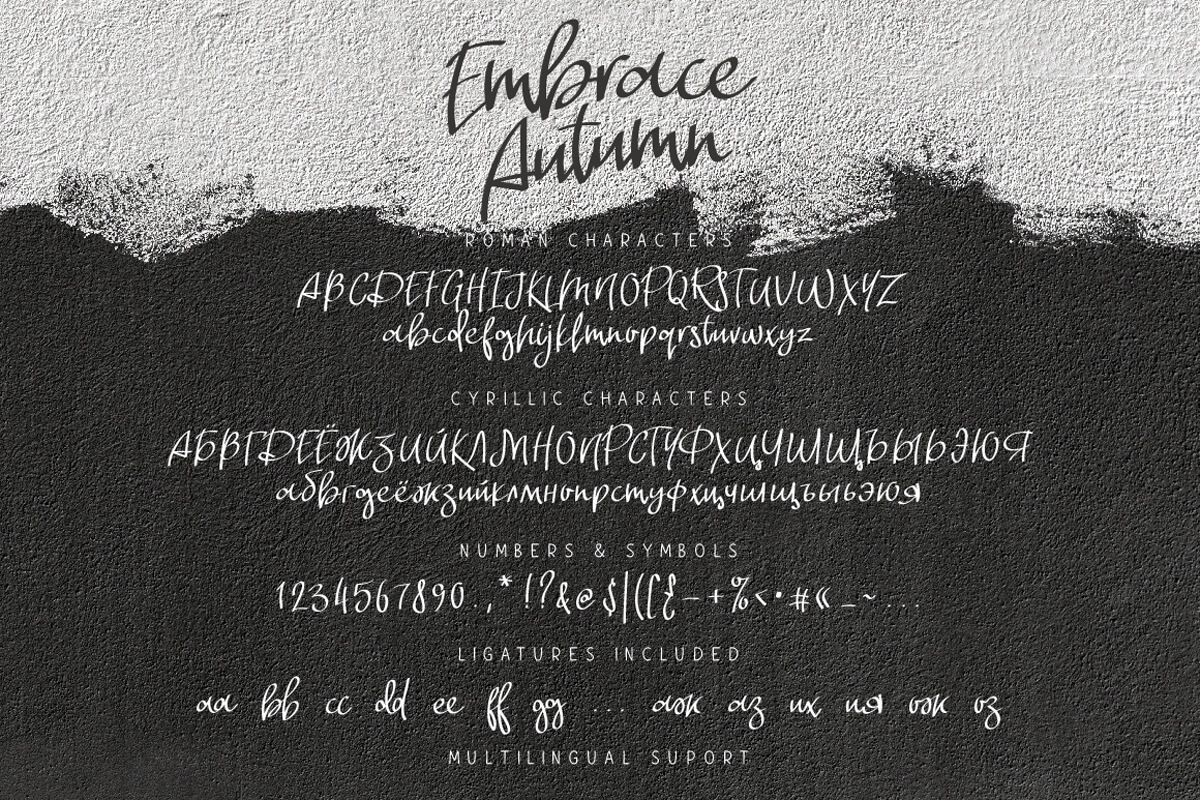 Embrace
Autumn
ROMAN CHARACTERS
ABCDEFGHIJKLMNOPQRSTUVWXYZ
abcdefghijklmnopqrstuvwxyz
CYRILLIC CHARACTERS
АБВГДЕЁЖЗИЙКЛМНОПРСТУФХЦЧШЩЪЫЬЭЮЯ
абвгдеёжзийклмнопрстуфхцчшщъыьэюя
NUMBERS & SYMBOLS
1234567890.,*!?&@$|([{–+%<•#«_~...
LIGATURES INCLUDED
aa bb cc dd ee ff gg ... аж аз их ия ож оз
MULTILINGUAL SUPORT